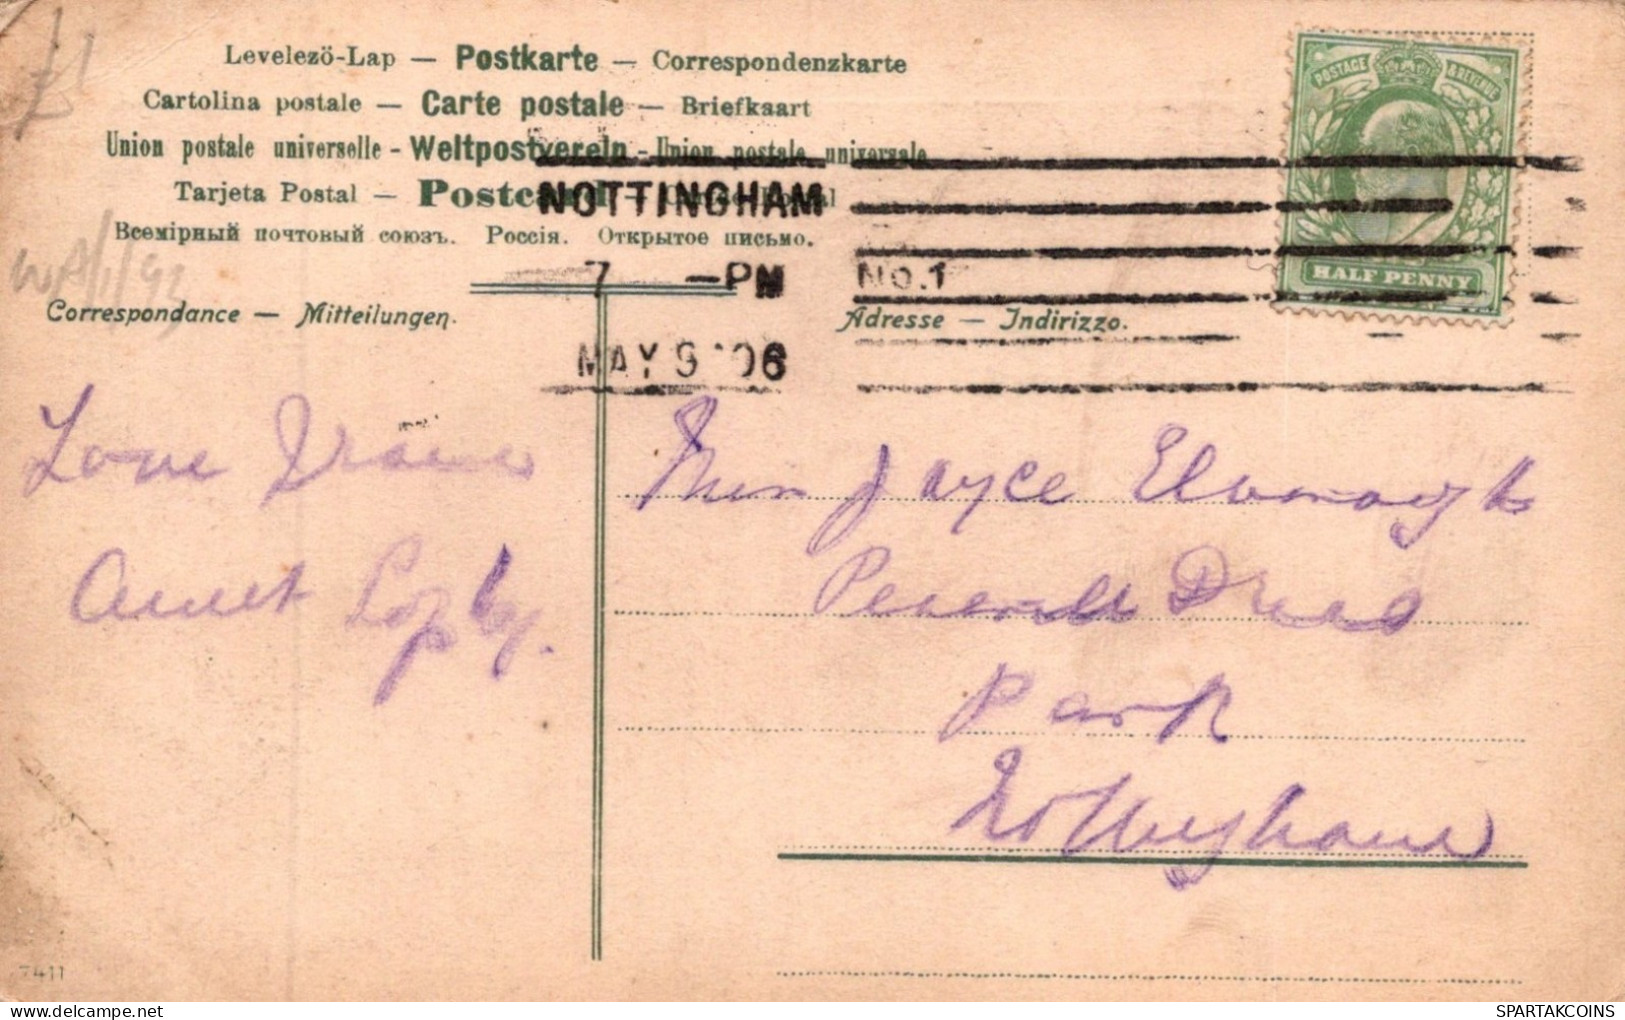 £1
Levelező-Lap — Postkarte — Correspondenzkarte
Cartolina postale — Carte postale — Briefkaart
Union postale universelle - Weltpostverein - Union postale universale
Tarjeta Postal — Postcard —
Всемірный почтовый союзъ. Россія. Открытое письмо.
POSTAGE & REVENUE
HALF PENNY
NOTTINGHAM
7 —PM No.1
MAY 9 '06
Correspondance — Mitteilungen.
Adresse — Indirizzo.
Love from
Aunt
Miss Jayce
Drive
Park
Nottingham
7411
SPARTAKCOINS